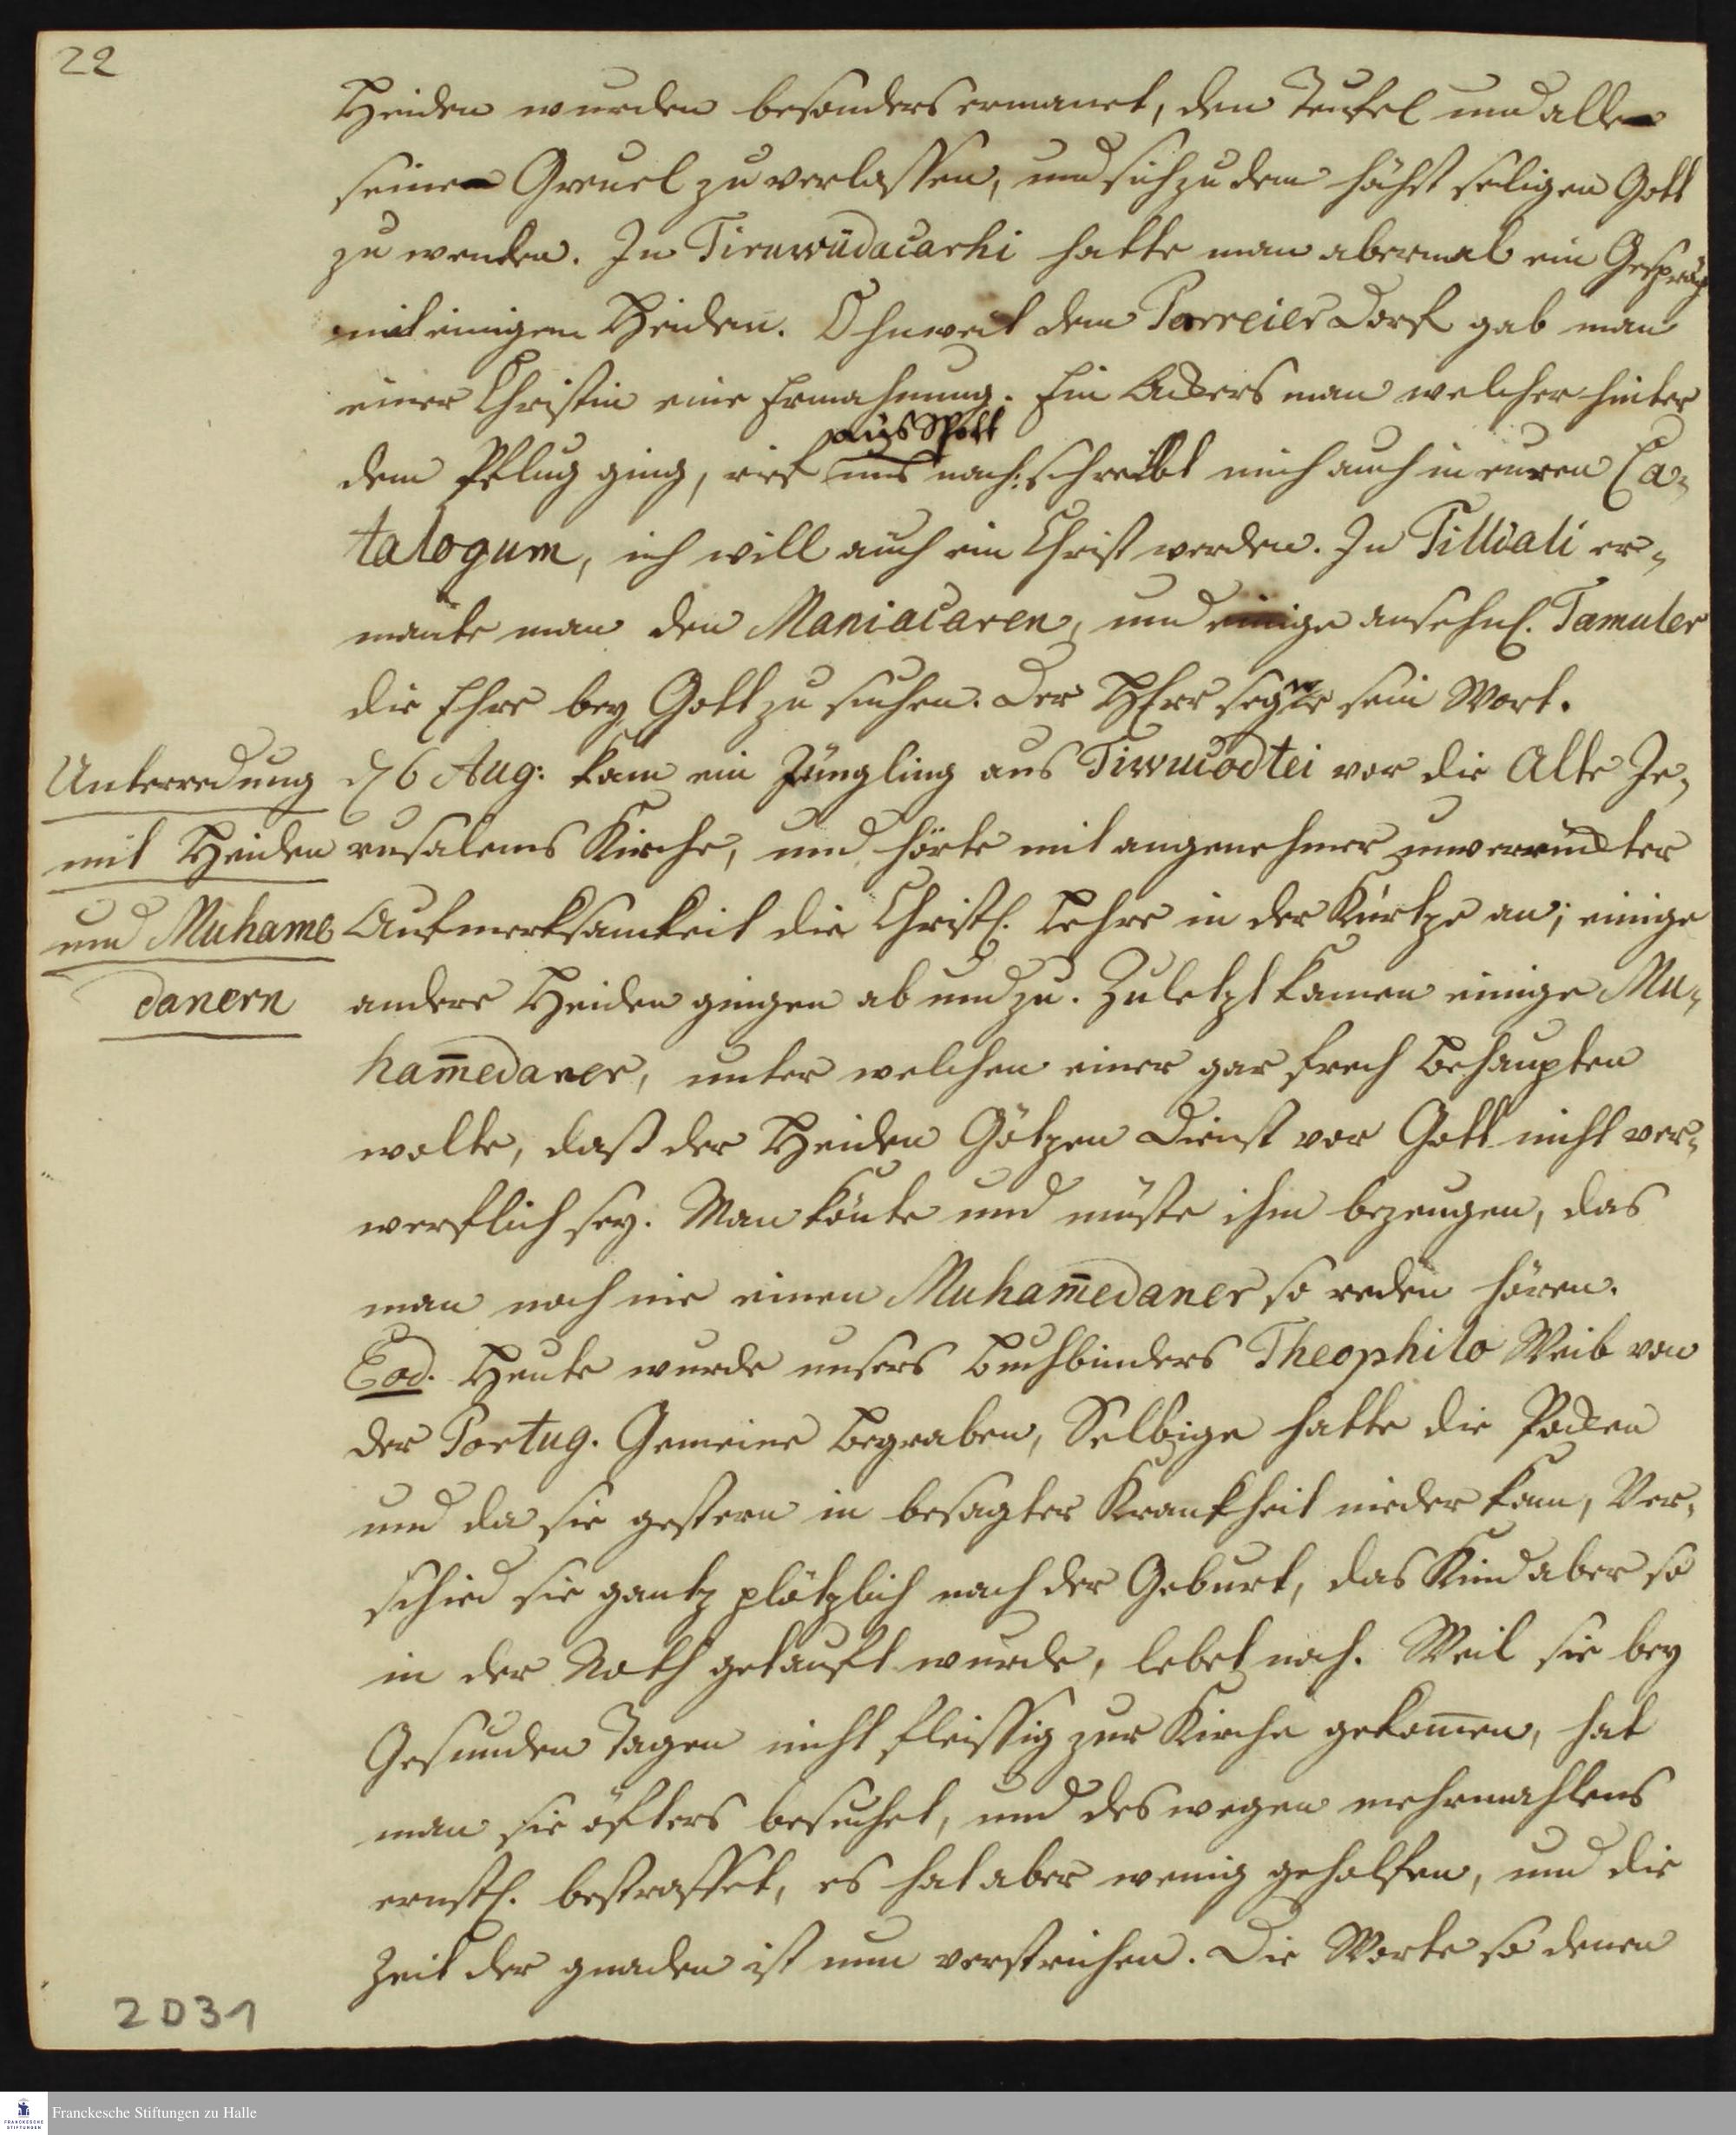 22
Heiden wurden besonders ermanet, den Teufel und alle
seine Greuel zu verlassen, und sich zu dem höchst seligen Gott
zu wenden. In Tiruwüdacarhi hatte man abermal ein Gespräch
mit einigen Heiden. Ohnweit dem Parreier Dorf gab man
einer Christin eine Ermahnung. Ein Ackers man welcher hinter
aus Spott
dem Pflug ging, rief uns nach: schreibt mich auch in euren Ca-
talogum, ich will auch ein Christ werden. In Tilliali er-
mante man den Maniacaren, und einige ansehnl. Tamuler
die Ehre bey Gott zu suchen. Der HErr segne sein Wort.
Unterredung
mit Heiden
und Muhame
danern
d. 6 Aug: kam ein Jüngling aus Tiwucodtei vor die Alte Je-
rusalems Kirche, und hörte mit angenehmer unverrückter
Aufmerksamkeit die Christl. Lehre in der Kürtze an; einige
andere Heiden gingen ab und zu. Zuletzt kamen einige Mu-
ham̅edaner, unter welchen einer gar frech behaupten
wolte, daß der Heiden Götzen Dienst vor Gott nicht ver-
werflich sey. Man könte und müste ihm bezeugen, das
man noch nie einen Muham̅edaner so reden hören.
Eod. Heute wurde unsers Buchbinders Theophilo Weib von
der Portug. Gemeine begraben, Selbige hatte die Pocken
und da sie gestern in besagter Kranckheit nieder kam, Ver-
schied sie gantz plötzlich nach der Geburt, das Kind aber so
in der Noth getauft wurde, lebet noch. Weil sie bey
Gesunden Tagen nicht fleissig zur Kirche gekom̅en, hat
man sie öfters besuchet, und des wegen mehrmahlens
ernstl. bestraffet, es hat aber wenig geholfen, und die
Zeit der gnaden ist nun verstrichen. Die Worte so denen
2031
Franckesche Stiftungen zu Halle